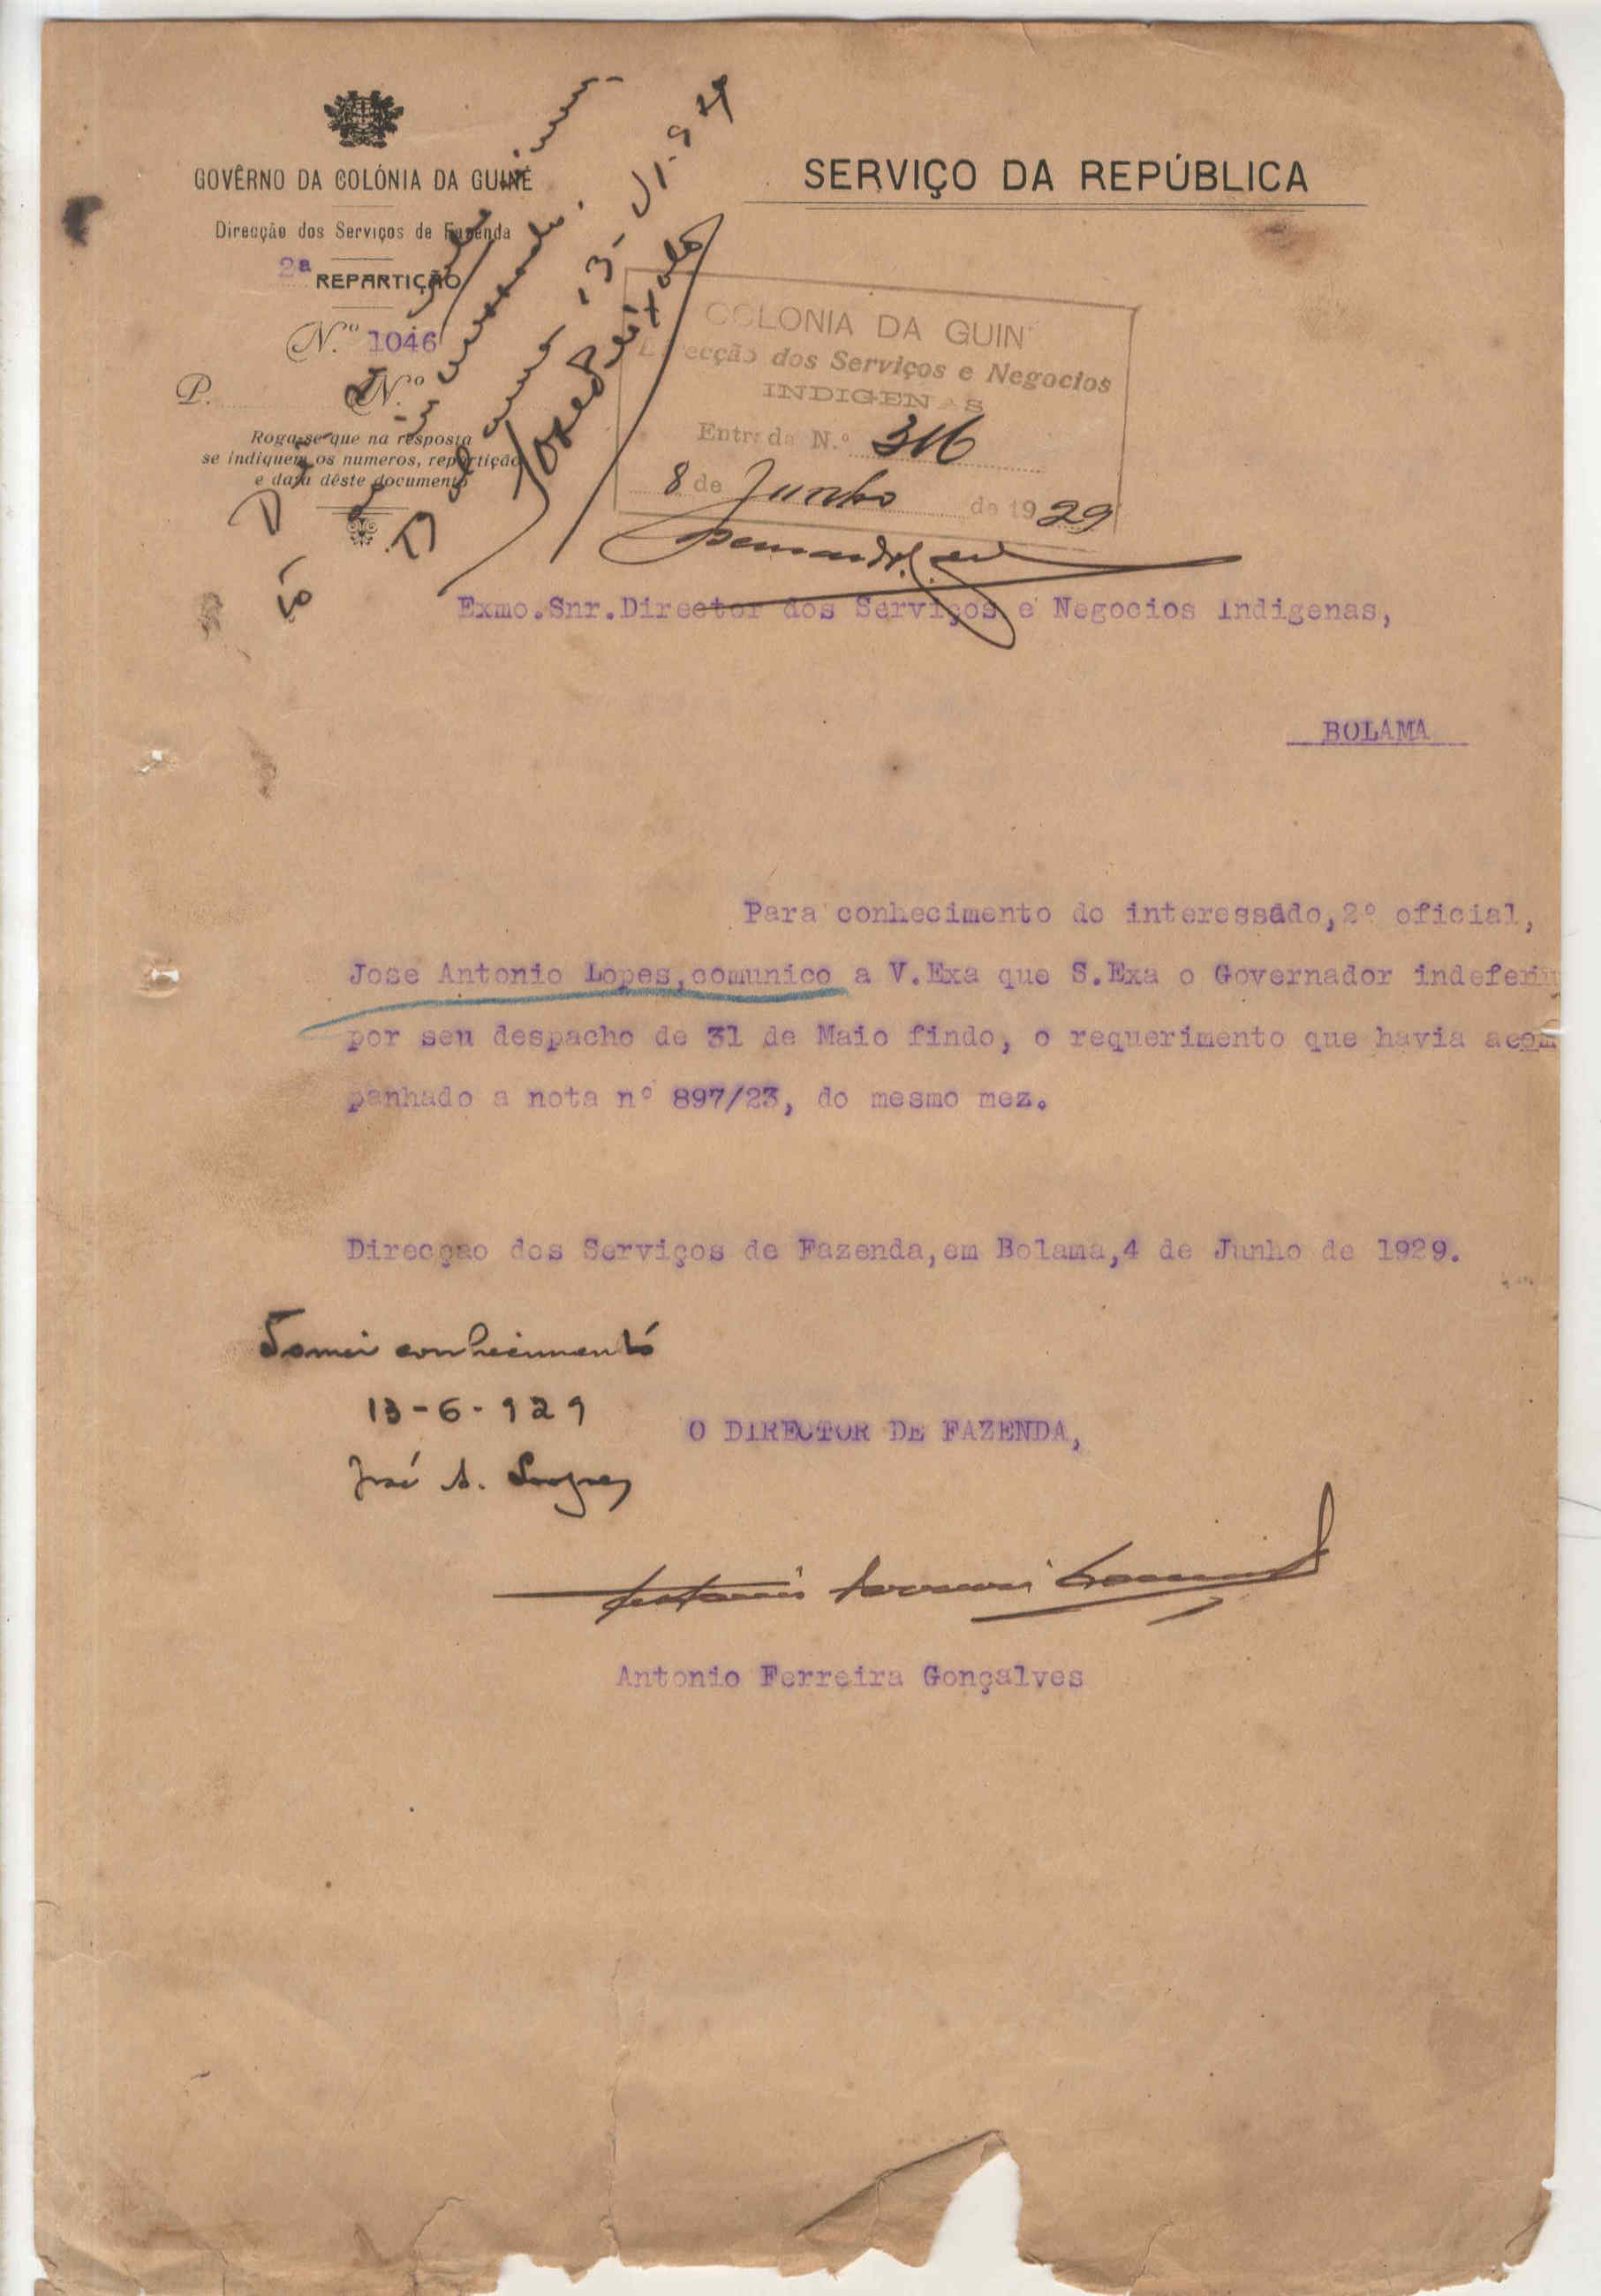 GOVÊRNO DA COLÓNIA DA GUINÉ
Direcção dos Serviços de Fazenda
2ª REPARTIÇÃO
N.º 1046
P. N.º
Roga-se que na resposta
se indiquem os numeros, repartição
e data dêste documento
SERVIÇO DA REPÚBLICA
COLONIA DA GUIN
Direcção dos Serviços e Negocios
INDIGENAS
Entrada N.º 316
8 de Junho de 1929
13-VI-929
Exmo.Snr.Director dos Serviços e Negocios Indigenas,
BOLAMA
Para conhecimento do interessado,2º oficial,
Jose Antonio Lopes,comunico a V.Exa que S.Exa o Governador indeferiu
por seu despacho de 31 de Maio findo, o requerimento que havia acom
panhado a nota nº 897/23, do mesmo mez.
Direcçao dos Serviços de Fazenda,em Bolama,4 de Junho de 1929.
Tomei conhecimento
13-6-929
José A. Lopes
O DIRECTOR DE FAZENDA,
Antonio Ferreira Gonçalves